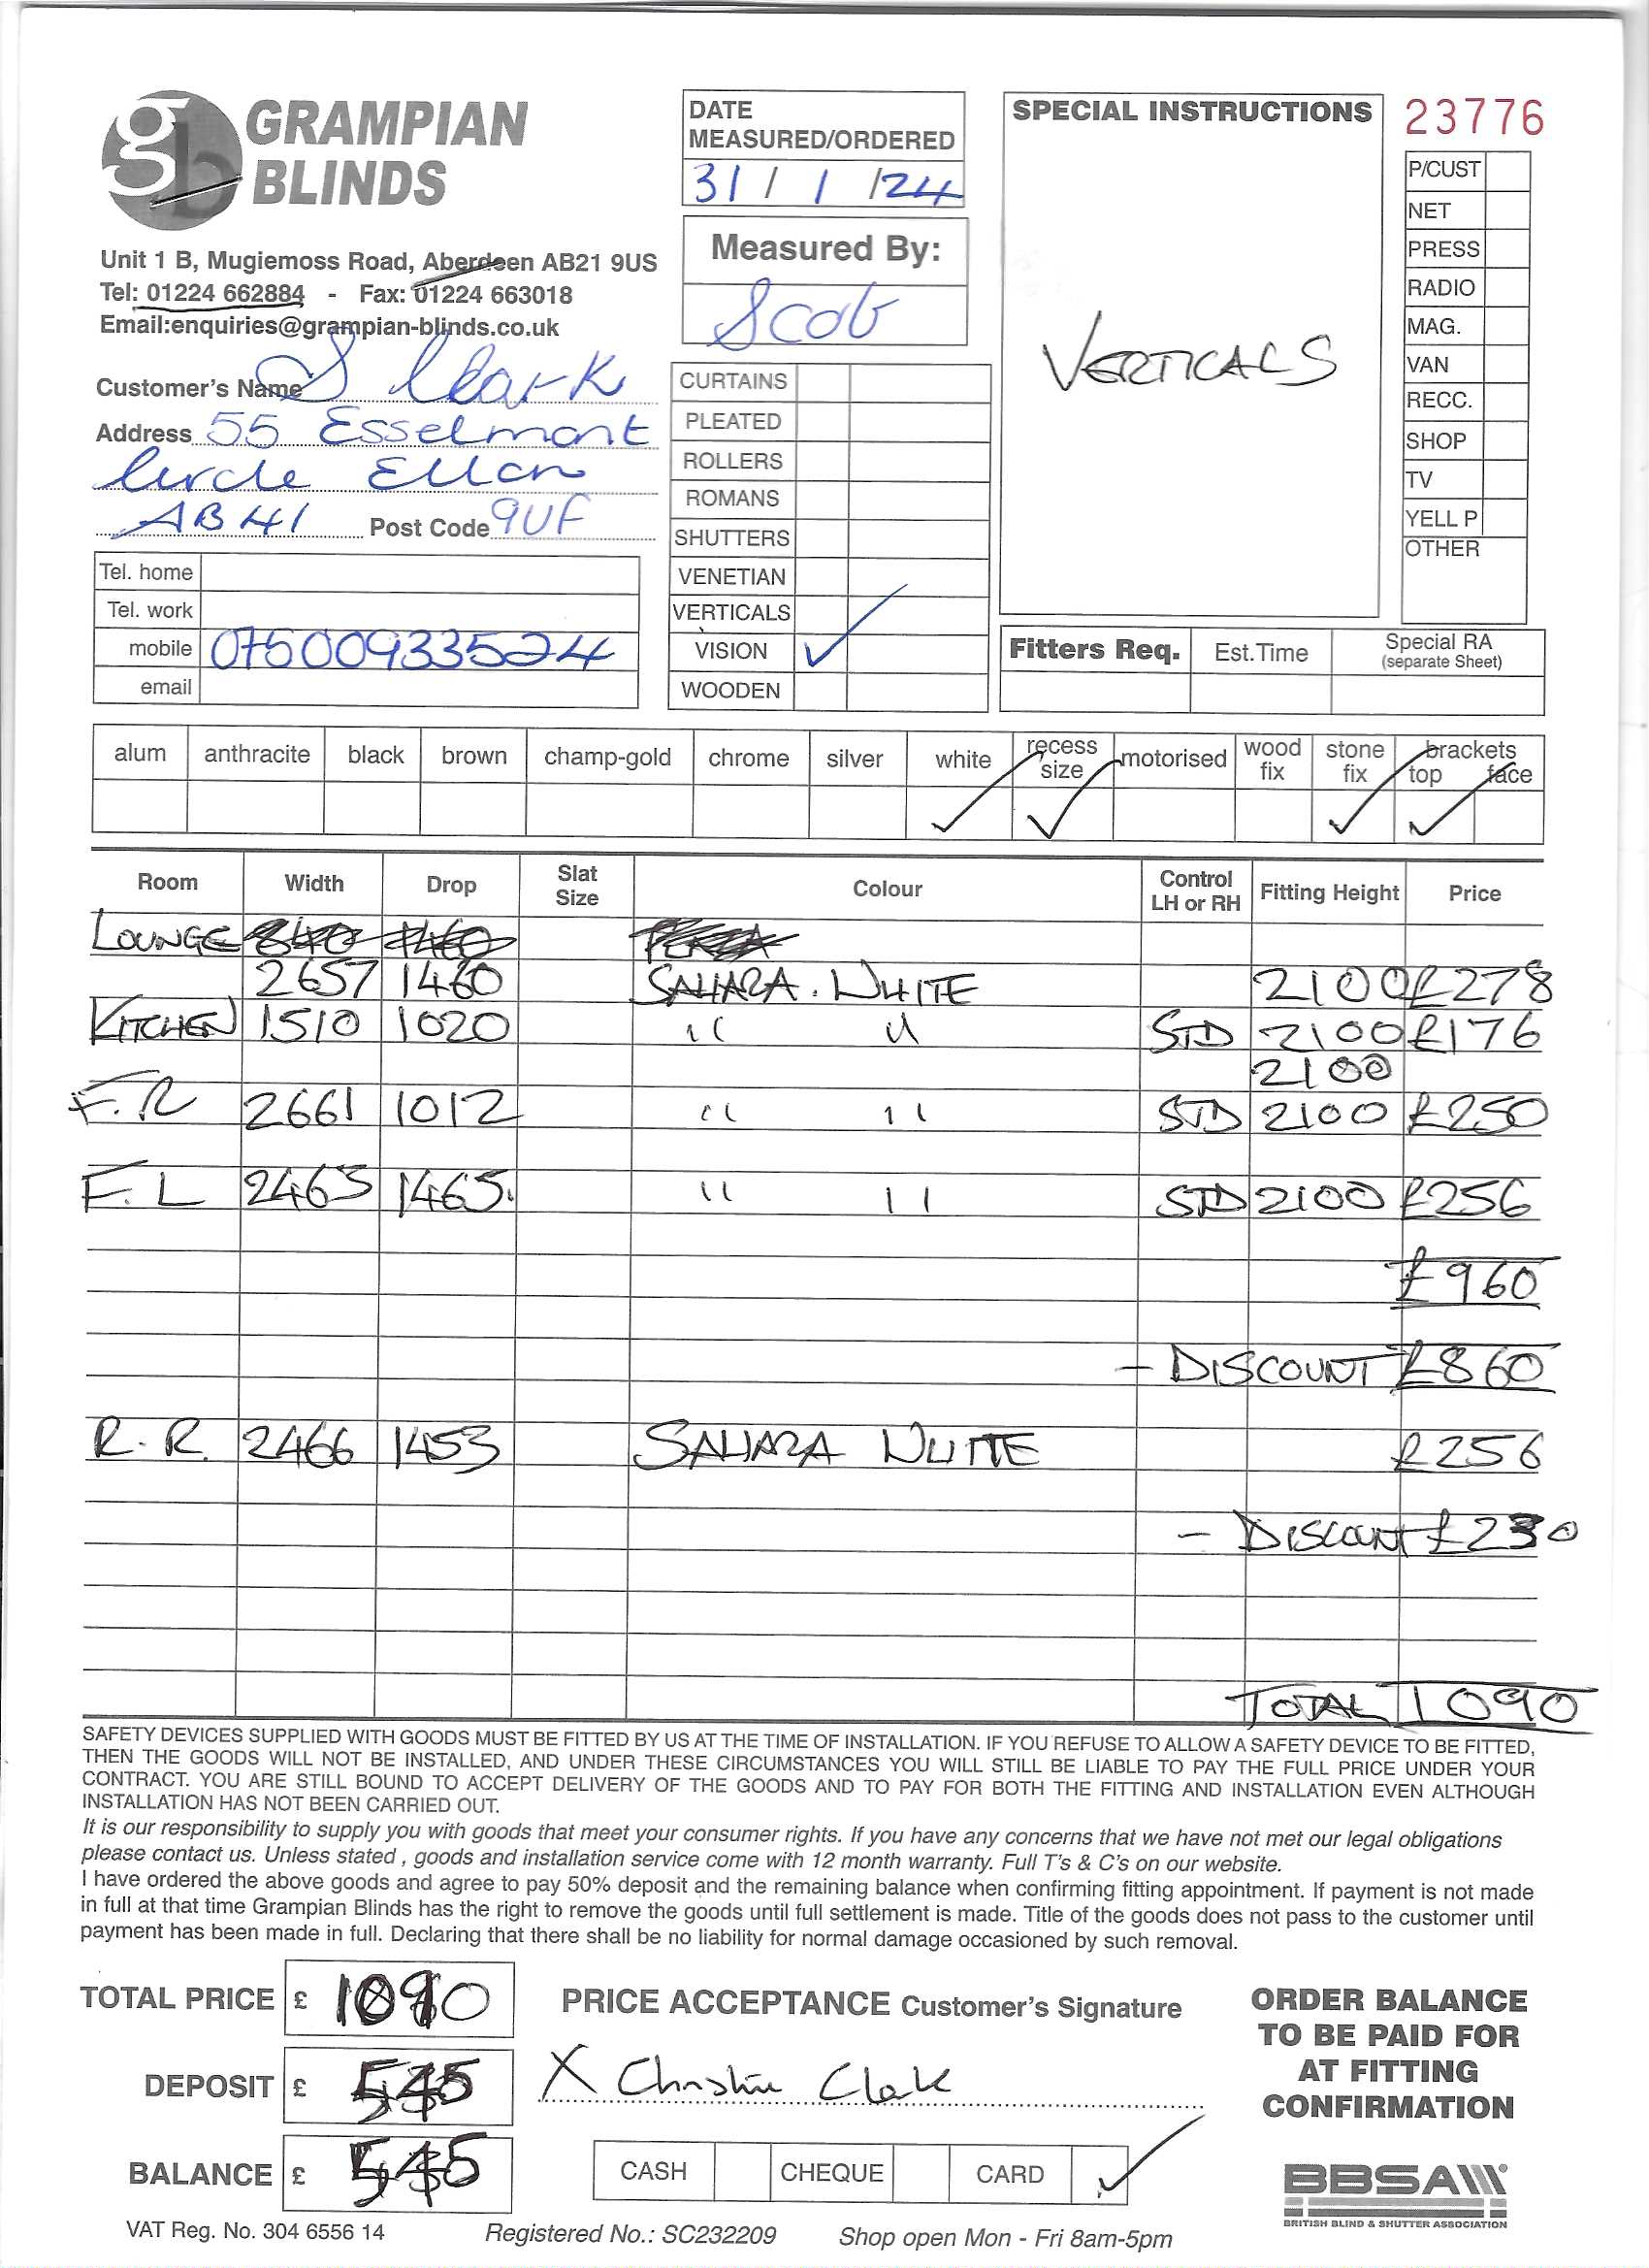 gb GRAMPIAN
BLINDS
Unit 1 B, Mugiemoss Road, Aberdeen AB21 9US
Tel: 01224 662884 - Fax: 01224 663018
Email:enquiries@grampian-blinds.co.uk
Customer's Name S Clark
Address 55 Esselmont
Circle Ellon
AB41 Post Code 9UF
Tel. home
Tel. work
mobile 07500933524
email
DATE
MEASURED/ORDERED
31 / 1 /24
Measured By:
Scob
CURTAINS
PLEATED
ROLLERS
ROMANS
SHUTTERS
VENETIAN
VERTICALS
VISION ✓
WOODEN
SPECIAL INSTRUCTIONS
VERTICALS
23776
P/CUST
NET
PRESS
RADIO
MAG.
VAN
RECC.
SHOP
TV
YELL P
OTHER
Fitters Req. Est.Time Special RA
(separate Sheet)
alum anthracite black brown champ-gold chrome silver white recess size motorised wood fix stone fix brackets top face
✓ ✓ ✓ ✓
Room Width Drop Slat Size Colour Control LH or RH Fitting Height Price
LOUNGE
2657 1460 SAHARA. WHITE 2100 £278
KITCHEN 1510 1020 " " STD 2100 £176
2100
F.R 2661 1012 " " STD 2100 £250
F.L 2463 1465. " " STD 2100 £256
£960
- DISCOUNT £860
R.R. 2466 1453 SAHARA WHITE £256
- DISCOUNT £230
TOTAL 1090
SAFETY DEVICES SUPPLIED WITH GOODS MUST BE FITTED BY US AT THE TIME OF INSTALLATION. IF YOU REFUSE TO ALLOW A SAFETY DEVICE TO BE FITTED,
THEN THE GOODS WILL NOT BE INSTALLED, AND UNDER THESE CIRCUMSTANCES YOU WILL STILL BE LIABLE TO PAY THE FULL PRICE UNDER YOUR
CONTRACT. YOU ARE STILL BOUND TO ACCEPT DELIVERY OF THE GOODS AND TO PAY FOR BOTH THE FITTING AND INSTALLATION EVEN ALTHOUGH
INSTALLATION HAS NOT BEEN CARRIED OUT.
It is our responsibility to supply you with goods that meet your consumer rights. If you have any concerns that we have not met our legal obligations
please contact us. Unless stated , goods and installation service come with 12 month warranty. Full T's & C's on our website.
I have ordered the above goods and agree to pay 50% deposit and the remaining balance when confirming fitting appointment. If payment is not made
in full at that time Grampian Blinds has the right to remove the goods until full settlement is made. Title of the goods does not pass to the customer until
payment has been made in full. Declaring that there shall be no liability for normal damage occasioned by such removal.
TOTAL PRICE £ 1090
DEPOSIT £ 545
BALANCE £ 545
PRICE ACCEPTANCE Customer's Signature
X Christine Clark
CASH CHEQUE CARD ✓
ORDER BALANCE
TO BE PAID FOR
AT FITTING
CONFIRMATION
BBSA
BRITISH BLIND & SHUTTER ASSOCIATION
VAT Reg. No. 304 6556 14 Registered No.: SC232209 Shop open Mon - Fri 8am-5pm